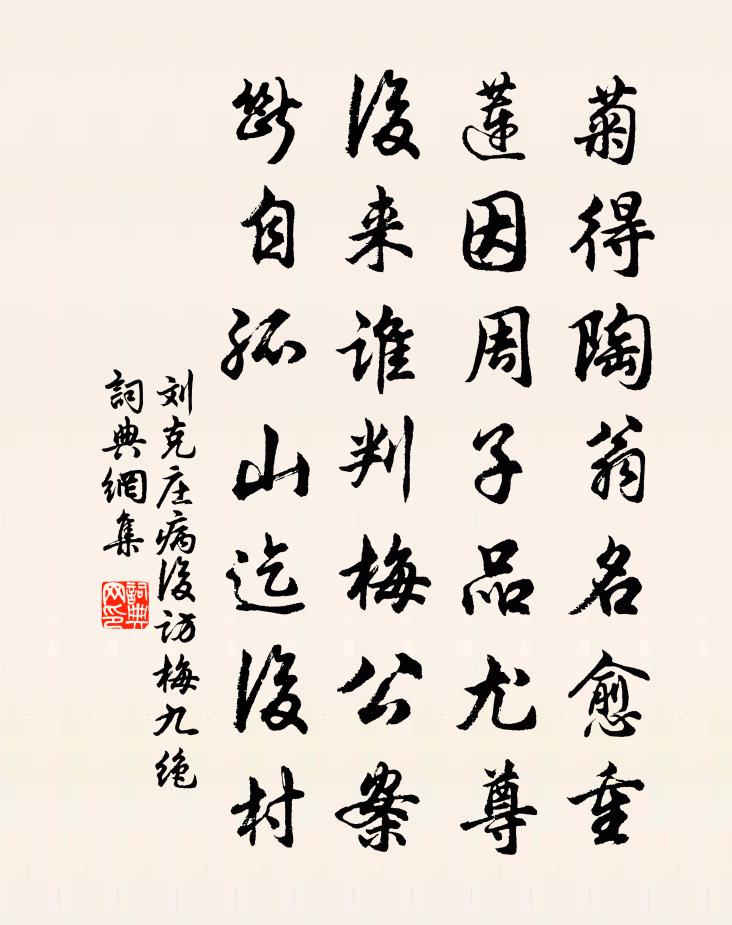 菊得陶翁名愈重
蓮因周子品尤尊
後来谁判梅公案
斷自孤山迄後村
刘克庄病後访梅九绝
詞典網集
詞典网印